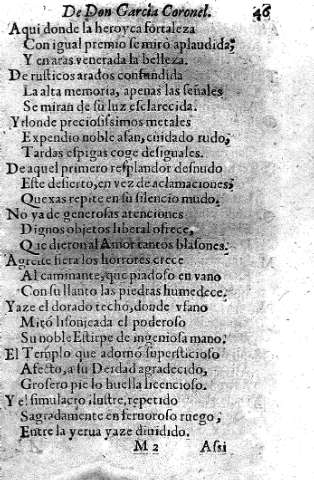 De Don Garcia Coronel. 46
Aqui donde la heroyca fortaleza
Con igual premio se mirò aplaudida,
Y en aras venerada la belleza.
De rusticos arados confundida
La alta memoria, apenas las señales
Se miran de su luz esclarecida.
Y donde preciosissimos metales
Expendio noble afan, cuidado rudo,
Tardas espigas coge desiguales.
De aquel primero resplandor desnudo
Este desierto, en vez de aclamaciones,
Quexas repite en su silencio mudo.
No ya de generosas atenciones
Dignos objetos liberal ofrece,
Que dieron al Amor tantos blasones.
Agreste fiera los horrores crece
Al caminante, que piadoso en vano
Con su llanto las piedras humedece.
Yaze el dorado techo, donde vfano
Mirò lisonjeada el poderoso
Su noble Estirpe de ingeniosa mano.
El Templo que adornò supersticioso
Afecto, a su Deidad agradecido,
Grosero pie lo huella licencioso.
Y el simulacro ilustre, repetido
Sagradamente en feruoroso ruego,
Entre la yerua yaze diuidido.
M 2 Assi